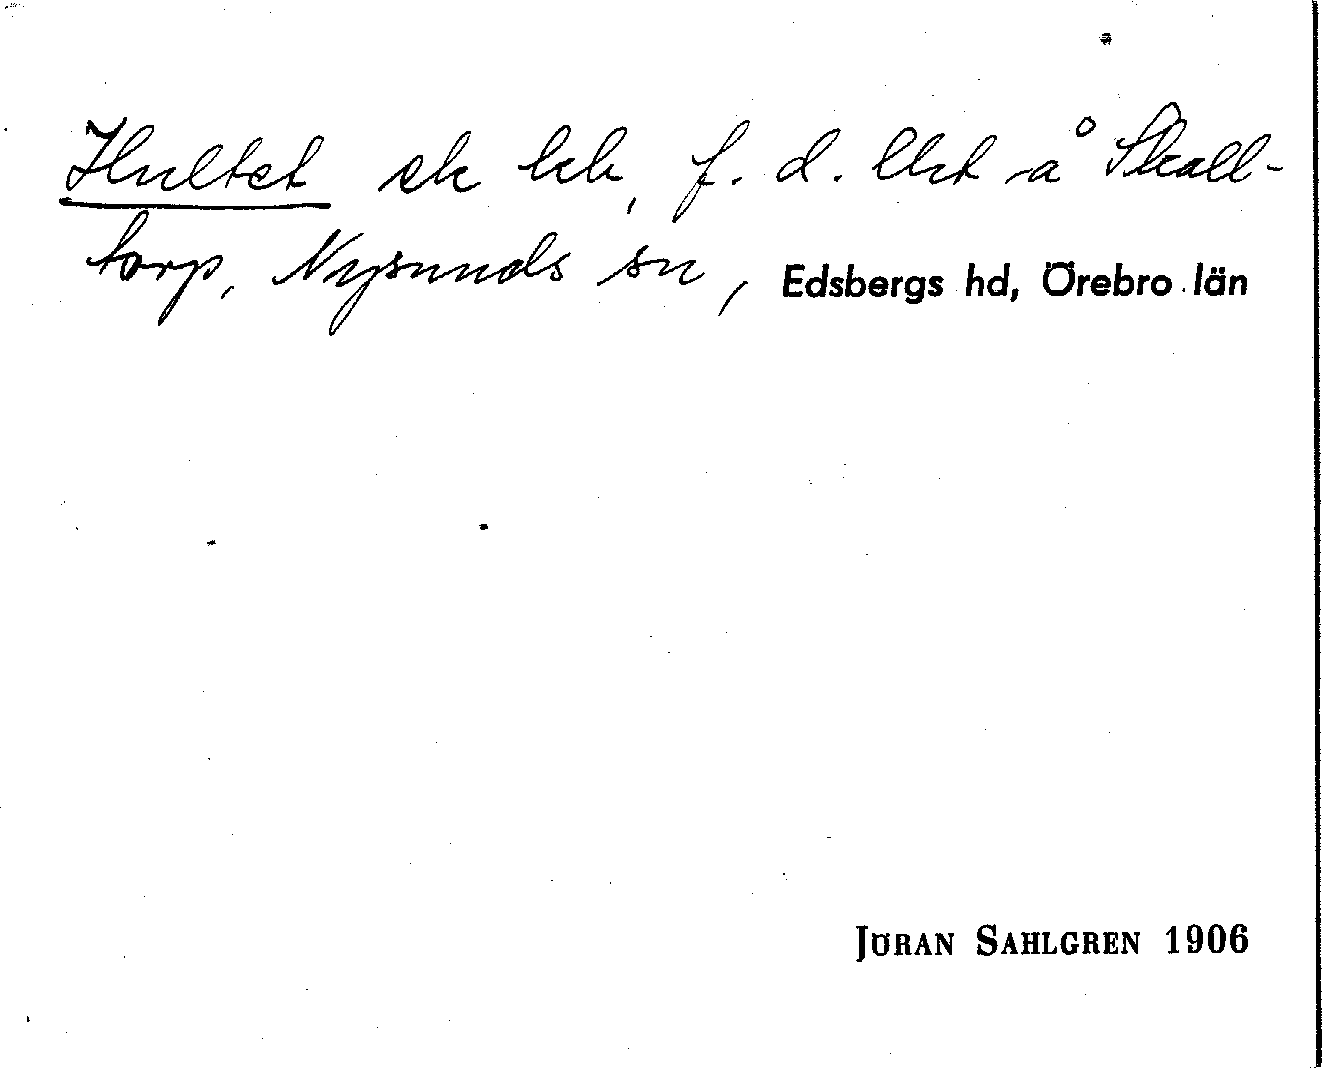 Hultet ek lek, f. d. lht å Skall-
torp, Nysunds sn, Edsbergs hd, Örebro län
JÖRAN SAHLGREN 1906